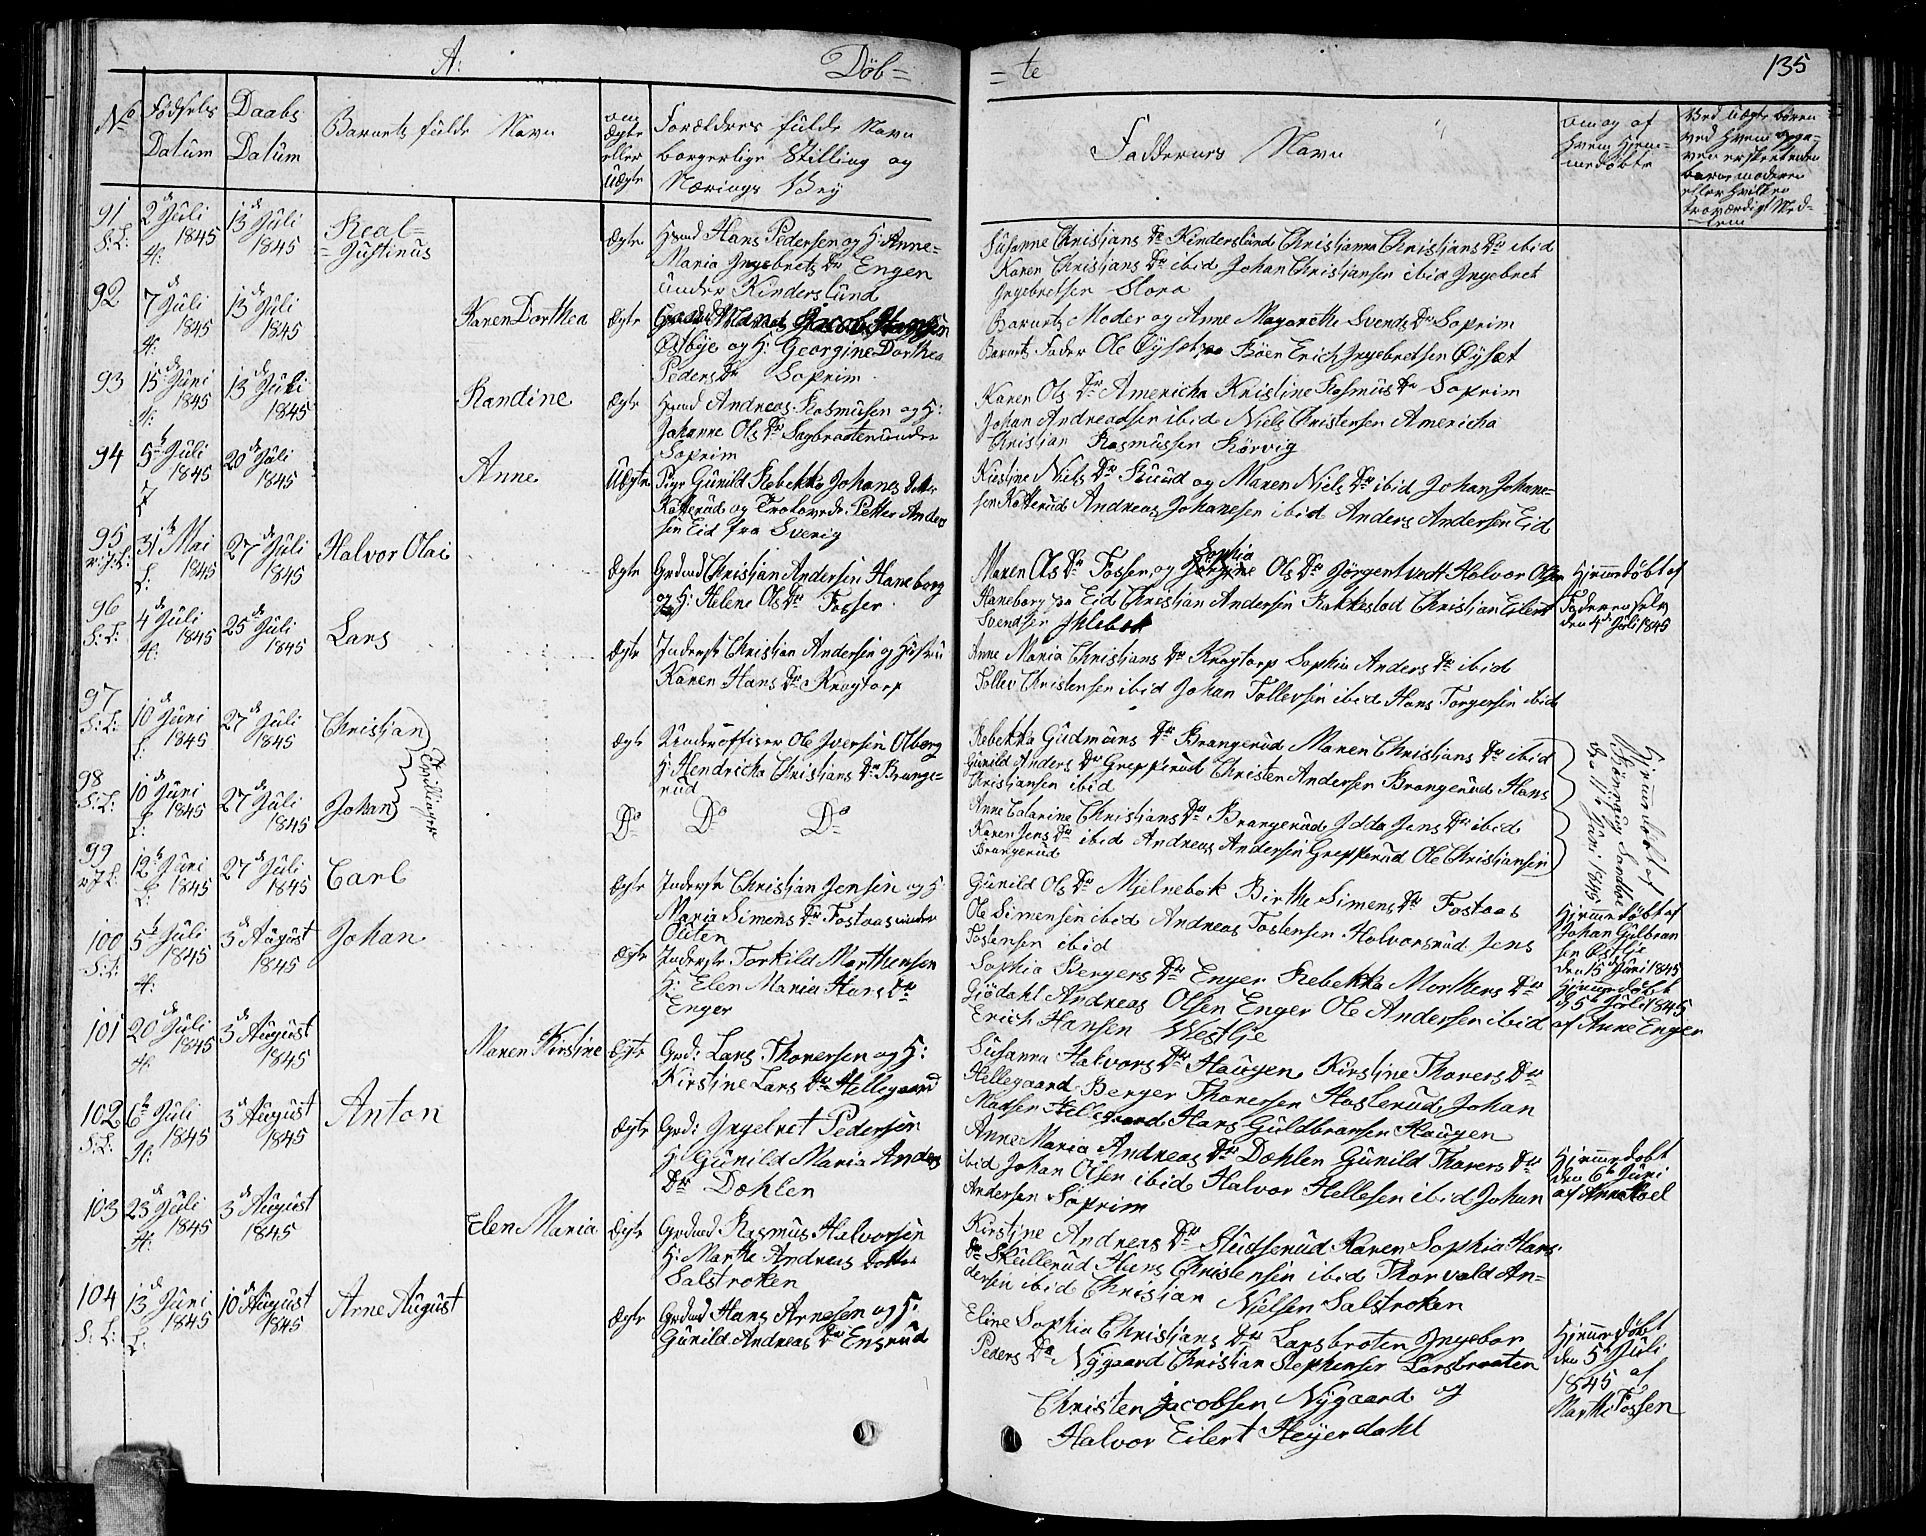 A:
Döb=
= te
135
No
Födsels Datum
Daabs Datum
Barnets fulde Navn
om Ægte eller Uægte
Forældres fulde Navn borgerlige Stilling og Nærings Vey
Faddernes Navn
om og af hvem hjemmedöbte
91 S:L:
2d Juli 1845 H:
13d Juli 1845
Real=
=Justinus
Ægte
Hmd Hans Pedersen og H: Anne=
Maria Ingebrets Dr Engen
under Kinderslund
Susanne Christians Dr Kinderslund Christianna Christians Dr ibid
Karen Christians Dr ibid Johan Christiansen ibid Ingebret
Ingebretsen Slora
92
7d Juli 1845 H:
13d Juli 1845
Karen Dorthea
Ægte
Jacob Hansen
Östbye og H: Georgine Dorthea
Peders Dr Soprim
Barnets Moder og Anne Magrethe Svends Dr Soprim
Barnets Fader Ole Öÿset Erich Ingebretsen Öÿset
93
15d Juni 1845 H:
13d Juli 1845
Randine
Ægte
Hmd Andreas Rasmusen og H:
Johanne Ols Dr Sagbraaten under
Soprim
Karen Ols Dr Americha Kristine Rasmus Dr Soprim
Johan Andreassen ibid Niels Christensen Americha
Christian Rasmussen Rörvig
94
5t Juli 1845
20d Juli 1845
Anne
Uægte
Pige Gunild Rebekka Johanes Datter
Kotterud og Trolovede Petter Anders
sen Eid fra Sverig
Kiestine Niels Dr og Maren Niels Dr ibid Johan Johane=
sen Kotterud Andreas Johanesen ibid Anders Andersen Eid
95
31t Mai 1845 L:
27d Juli 1845
Halvor Olai
Ægte
Grdmd Christian Andersen Haneborg
og H: Helene Ols Dr Fosser
Maren Ols Dr Fosser og Sophia Ols Dr Jörgentvedt Halvor Olsen
Haneborg fra Eid Christian Andersen Rakkestad Christian Eilert
Svendsen
Hjemmedöbt af
Faderen selv
den 4de Juli 1845
96 S:L:
4d Juli 1845 H:
25d Juli 1845
Lars
Ægte
Inderste Christian Andersen og Hustru
Karen Hans Dr Krogtorp
Anne Maria Christians Dr Krogtorp Sophia Anders Dr ibid
Tollev Christensen ibid Johan Tollevsen ibid Hans Torgersen ibid
97 S:L:
10d Juni 1845 L:
27d Juli 1845
Christian
Tvillinger
Ægte
Underofficer Ole Iversen Olberg
H: Hendricha Christians Dr Brange=
rud
Rebekka Gudmuns Dr Brangerud Maren Christians Dr ibid
Gunild Anders Dr Grepperud Christen Andersen Brangerud Hans
Christiansen ibid
98 S:L:
10d Juni 1845 L:
27d Juli 1845
Johan
Do
Do Do
Anne Catarine Christians Dr Brangerud Idda Jens Dr ibid
Karen Jens Dr ibid Andreas Andersen Grepperud Ole Christiansen
Brangerud
Hjemmedöbt af
den 11t Juni 1845
99
12t Juni 1845 L:
27d Juli 1845
Carl
Ægte
Inderste Christian Jensen og H:
Maria Simens Dr Fostaas under
Outen
Gunild Ols Dr Mjelnebak Birthe Simens Dr Fostaas
Ole Simensen ibid Andreas Tostensen Halvorsrud Jens
Tostensen ibid
Hjemmedöbt af
Johan Gulbran
sen Östbÿe
den 15d Juni 1845
100 S:L:
5t Juli 1845 H:
3d August 1845
Johan
Ægte
Inderste Torkild Marthensen
H: Elen Maria Hans Dr
Enger
Sophia Bergers Dr Enger Rebekka Morthens Dr
Gjödahl Andreas Olsen Enger Ole Andersen ibid
Erich Hansen Westbÿe
Hjemmedöbt
d 5t Juli 1845
af Anne Enger
101
20d Juli 1845 H:
3d August 1845
Maren Kirstine
Ægte
Grd: Lars Thoresen og H:
Kirstine Lars Dr Hellegaard
Susanna Halvors Dr Haugen Kirstine Thorers Dr
Hellegaard Berger Thoresen Haslerud Johan
Madsen Hellegaard Hans Guldbransen Haugen
102 S:L:
6t Juli 1845 H:
3d August 1845
Anton
Ægte
Grd: Ingebret Pedersen
H: Gunild Maria Anders
Dr Dæhlen
Anne Maria Andreas Dr Dæhlen Gunild Thorers Dr
ibid Johan Olsen ibid Halvor Hellesen ibid Johan
Andersen Soprim
Hjemmedöbt
den 6t Juni
af Anne Roel
103
23d Juli 1845 H:
3d August 1845
Elen Maria
Ægte
Grdmd Rasmus Halvorsen
H: Marthe Andreas Datter
Salstroken
Kirstine Andreas Dr Studserud Karen Sophia Hans
Dr Skullerud Hans Christensen ibid Thorvald An=
dersen ibid Christian Nielsen Salstroken
104 S:L:
13d Juni 1845 L:
10d August 1845
Arne August
Ægte
Grdmd Hans Arnesen og H:
Gunild Andreas Dr Ensrud
Eline Sophia Christians Dr Larsbroten Ingebor
Peders Dr Nÿgaard Christian Stephensen Larsbraaten
Christen Jacobsen Nÿgaard og
Halvor Eilert Heÿerdahl
Hjemmedöbt
den 5t Juli
1845 af
Marthe Fossen